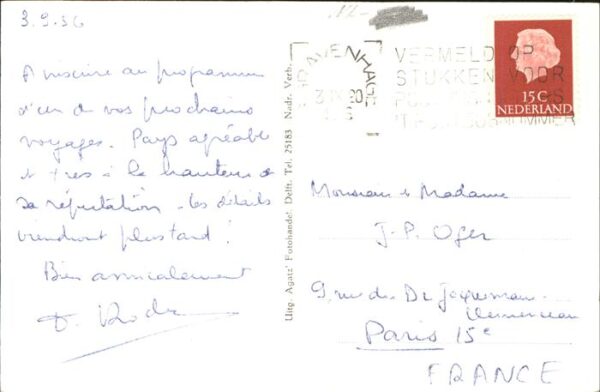 3.9.56
A inscrire au programme
d'un de vos prochains
voyages. Pays agréable
et très à la hauteur de
sa réputation. Les détails
viendront plus tard!
Bien amicalement
Uitg. Agatz' Fotohandel, Delft, Tel. 25183 Nadr. Verb.
'S GRAVENHAGE
VERMELD OP
STUKKEN VOOR
15C
NEDERLAND
Monsieur & Madame
J-P. Oger
9, rue du Dr Jacquemaire-
Clemenceau
Paris 15e
FRANCE